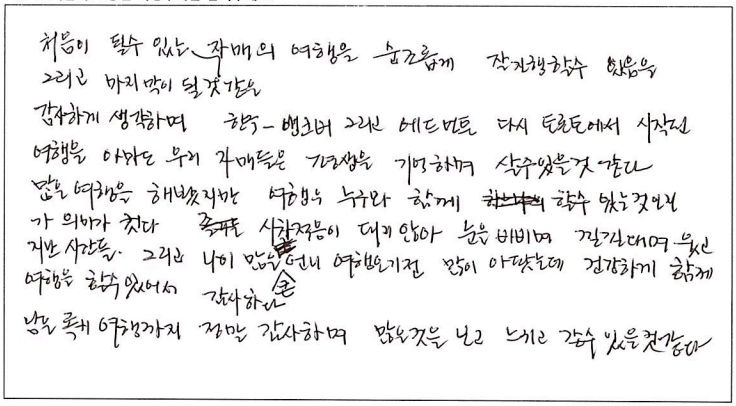 처음이 될수 있는 자매의 여행을 순조롭게 잘진행할수 있음을
그리고 마지막이 될것같은
감사하게 생각하며 한국-벵쿠버 그리고 에드먼튼 다시 토론토에서 시작된
여행을 아마도 우리 자매들은 평생을 기억하며 살수있을것 같다
많을 여행을 해봤지만 여행은 누구와 함께 할수 있는것인지
가 의미가 컷다 시차적응이 대지 않아 눈을 비비며 낄낄대며 웃고
지난 시간들. 그리고 나이 많은 큰 언니 여행오기전 많이 아팟는데 건강하게 함께
여행을 할수있어서 감사하다
남은 록키 여행까지 정말 감사하며 많은것을 보고 느끼고 갈수 있을것같다